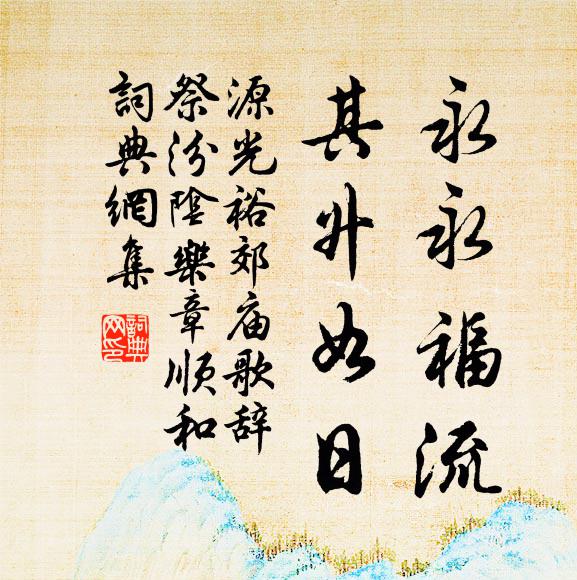 永永福流
其升如日
源光裕郊庙歌辞
祭汾陰樂章順和
詞典網集
詞典
网印